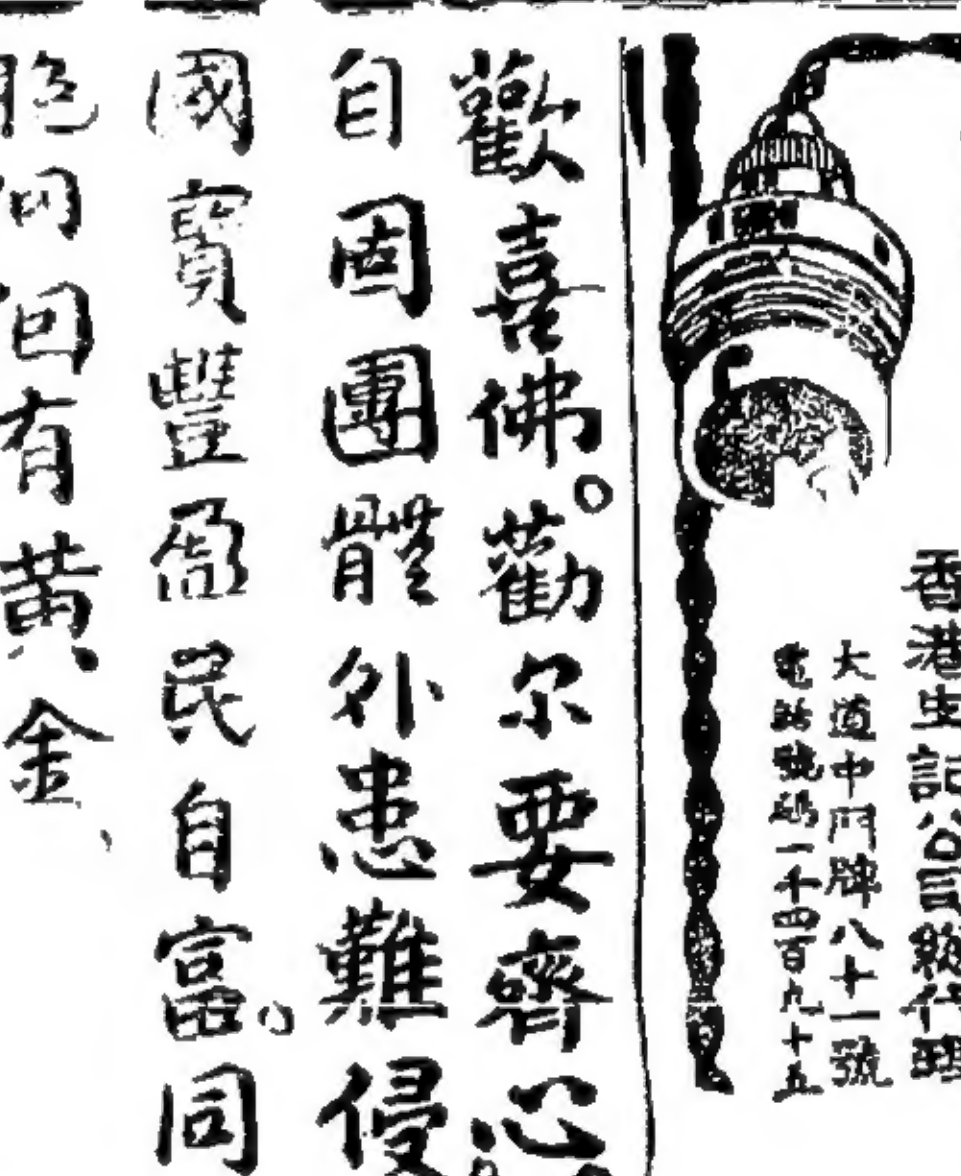 香港生記公司總代理
大道中門牌八十一號
電話號碼一千四百九十五
歡喜佛。勸尔要齊心
自固團體外患難侵
國寶豐盈民自富。同
胞個個有黃金